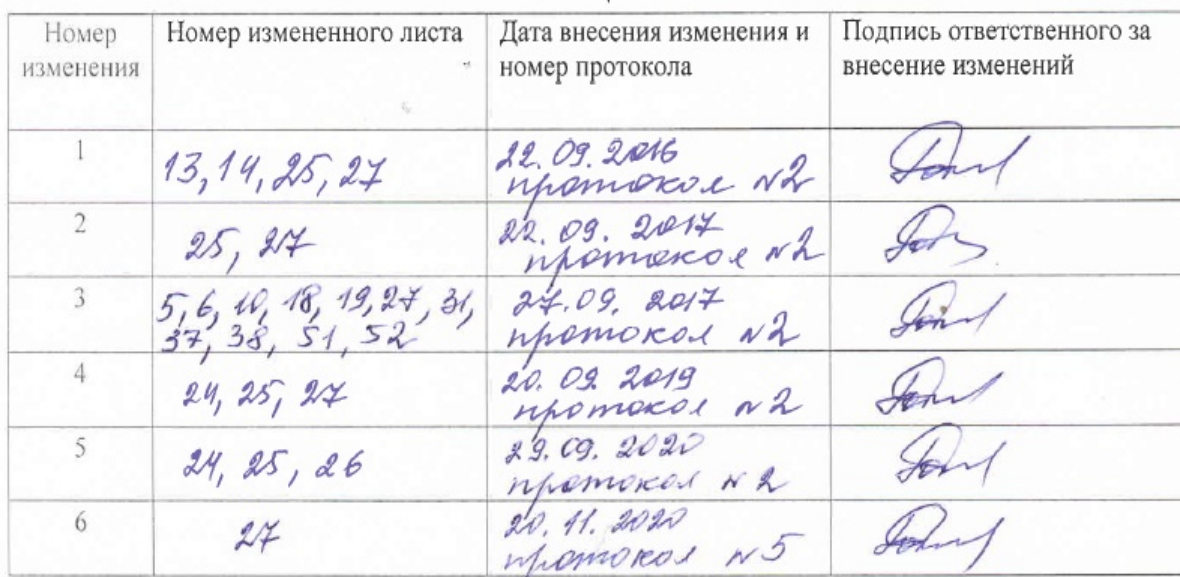 Номер изменения
Номер измененного листа
Дата внесения изменения и номер протокола
Подпись ответственного за внесение изменений
1
13, 14, 25, 27
22.09.2016
протокол №2
2
25, 27
22.09.2017
протокол №2
3
5, 6, 10, 18, 19, 27, 31,
37, 38, 51, 52
27.09.2017
протокол №2
4
24, 25, 27
20.09.2019
протокол №2
5
24, 25, 26
29.09.2020
протокол №2
6
27
20.11.2020
протокол №5